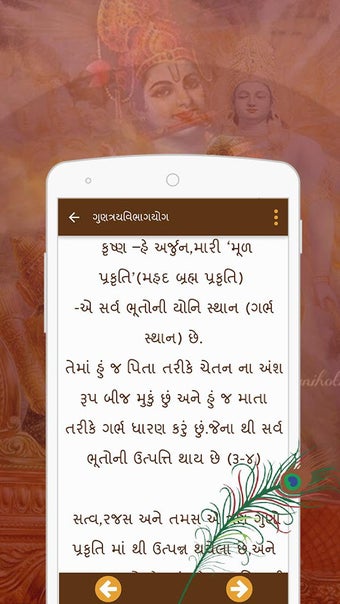 ગુણત્રયવિભાગયોગ
કૃષ્ણ –હે અર્જુન,મારી 'મૂળ
પ્રકૃતિ'(મહદ બ્રહ્મ પ્રકૃતિ)
-એ સર્વ ભૂતોની યોનિ સ્થાન (ગર્ભ
સ્થાન) છે.
તેમાં હું જ પિતા તરીકે ચેતન ના અંશ
રૂપ બીજ મુકું છું અને હું જ માતા
તરીકે ગર્ભ ધારણ કરું છું.જેના થી સર્વ
ભૂતોની ઉત્પત્તિ થાય છે (૩-૪)
સત્વ,રજસ અને તમસ એ ગુણો
પ્રકૃતિ માં થી ઉત્પન્ન થયેલા છે,અને